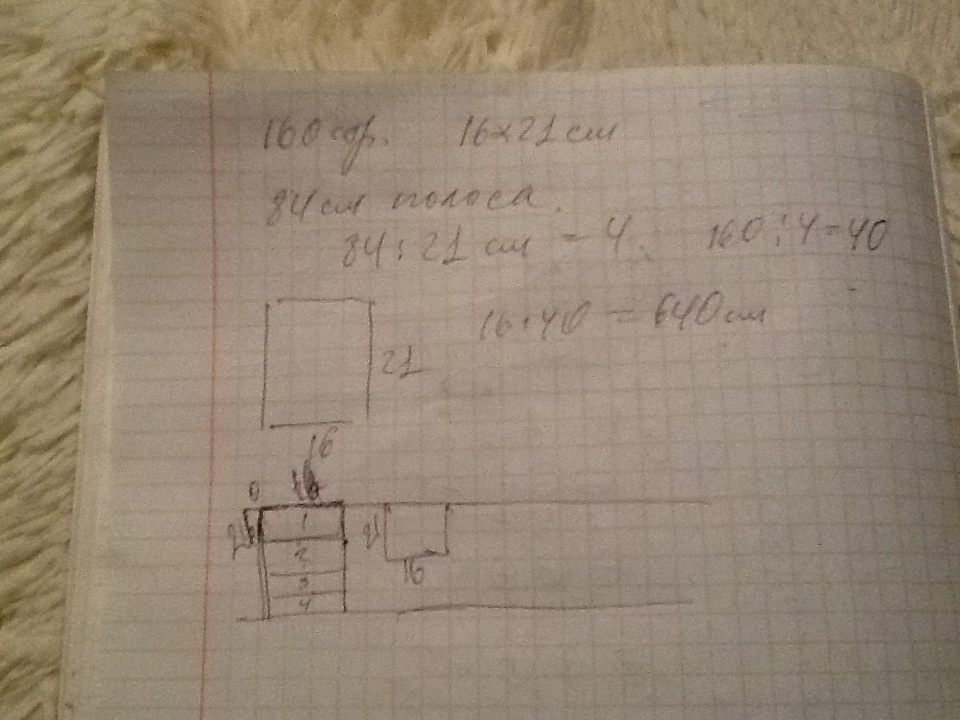 160 стр. 16×21 см
84 см полоса.
84 : 21 см = 4. 160 : 4 = 40
16 · 40 = 640 см
21
16
1
21
2
16
3
4